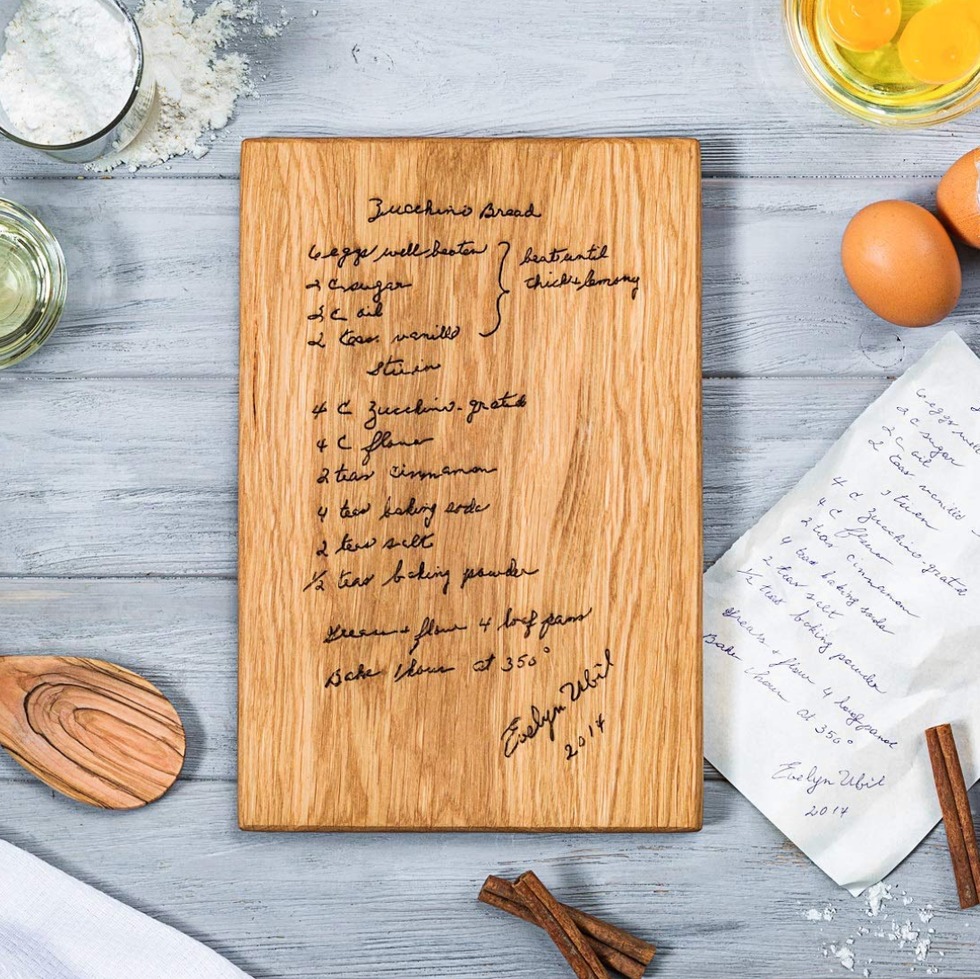 Zucchini Bread
6 eggs well beaten } beat until
2 C sugar thick & lemony
2 C oil
2 teas vanilla
Stir in
4 C Zucchini - grated
4 C flour
2 teas cinnamon
4 teas baking soda
2 teas salt
1/2 teas baking powder
Grease + flour 4 loaf pans
Bake 1 hour at 350°
Evelyn Ubil
2014
6 eggs
2 C sugar
2 C oil
2 teas vanilla
Stir in
4 C Zucchini - grated
4 C flour
2 teas cinnamon
4 teas baking soda
2 teas salt
1/2 teas baking powder
Grease + flour 4 loaf pans
Bake 1 hour at 350°
Evelyn Ubil
2014